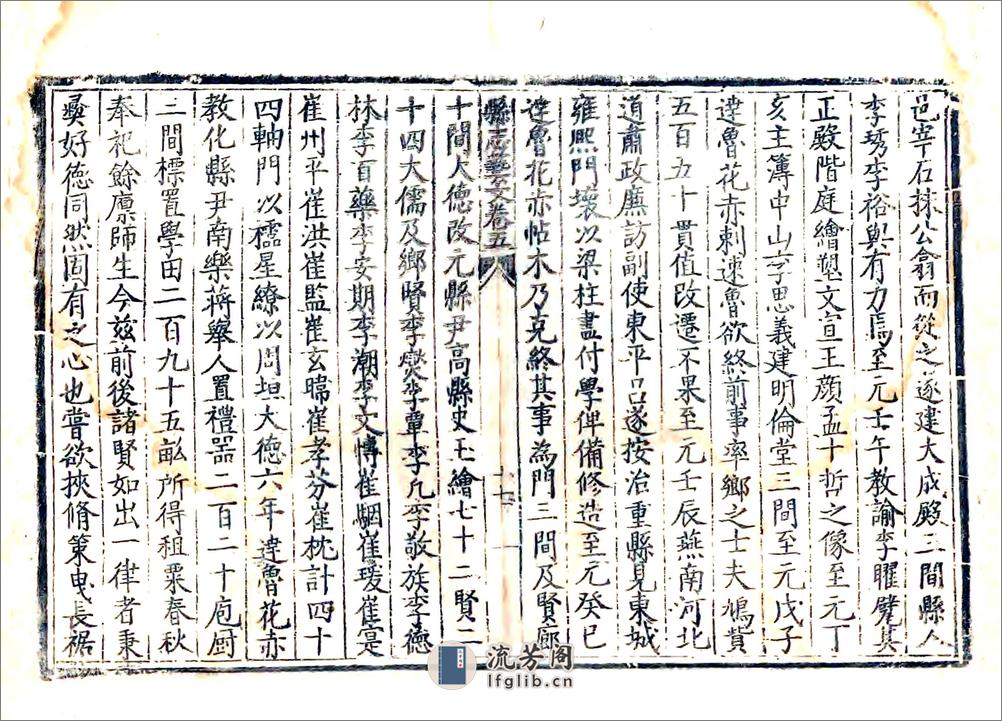 邑宰石抹公翕而從之遂建大成殿三間縣人
李琇李裕與有力焉至元壬午教諭李矅甓其
正殿階庭繪塑文宣王顏孟十哲之像至元丁
亥主簿中山李思義建明倫堂三間至元戊子
達魯花赤剌速魯欲終前事率鄉之士夫鳩貲
五百五十貫值改遷不果至元壬辰燕南河北
道肅政廉訪副使東平呂遂按治重縣見東城
雍熙門壞以梁柱盡付學俾備修造至元癸巳
達魯花赤帖木乃克終其事為門三間及賢廊
縣志藝文卷五
十七
十間人德改元縣尹高縣史王繪七十二賢二
十四大儒及鄉賢李燮李覃李凡李敬族李德
林李百藥李安期李潮李文博崔駰崔瑗崔寔
崔州平崔洪崔監崔玄暐崔孝芬崔枕計四十
四軸門以櫺星繚以周垣大德六年達魯花赤
教化縣尹南樂蔣舉人置禮器二百二十庖廚
三間標置學田二百九十五畝所得租粟春秋
奉祀餘廪師生今茲前後諸賢如出一律者秉
彝好德同然固有之心也嘗欲挾脩策曳長裾
流芳阁
lfglib.cn